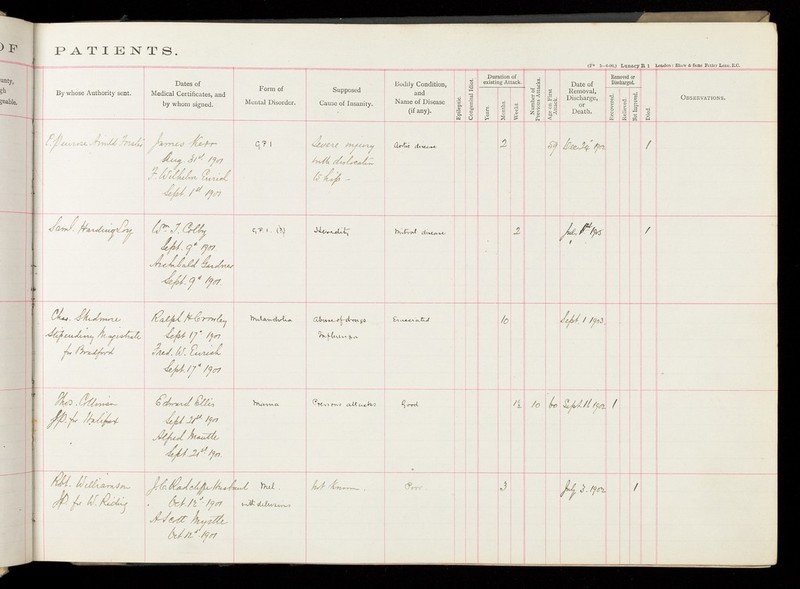 OF
PATIENTS.
(Fº 2—3-00.) Lunacy R 1 London: Shaw & Sons Fetter Lane, E.C.
By whose Authority sent.
Dates of
Medical Certificates, and
by whom signed.
Form of
Mental Disorder.
Supposed
Cause of Insanity.
Bodily Condition,
and
Name of Disease
(if any).
Epileptic.
Congenital Idiot.
Duration of
existing Attack.
Years.
Months.
Weeks.
Number of
Previous Attacks.
Age on First
Attack.
Date of
Removal,
Discharge,
or
Death.
Removed or
Discharged.
Recovered.
Relieved.
Not Improved.
Died.
Observations.
James Kerr
Aug. 31st 1901
Sept. 1st 1901
G.P.I
Severe injury
with dislocation
to hip -
Aortic disease
2
59
1902
1
Saml. Harding
Wm. J. Colby
Sept. 9th 1901
Archibald Gardner
Sept. 9th 1901.
G.P.I. (?)
Heredity
Mitral disease
2
1905
1
Chas. Skidmore
Stipendiary Magistrate
for Bradford
Ralph H. Crowley
Sept 17th 1901
Fred. W. Eurich
Sept. 17th 1901
Melancholia
Abuse of drugs
Emaciated
10
Sept. 1 1903.
Thos. Collinson
JP. for Halifax
Edward Ellis
Sept 21st 1901
Alfred
Sept. 21st 1901.
Mania
Previous attacks
Good
1½
10
60
Sept. 11 1902
1
Robt. Williamson
JP. for W. Riding
J. C. Radcliffe Husband
Oct. 12th 1901
A Scott
Oct 12th 1901
Mel.
with delusions
Not known.
Poor
3
July 3. 1902
1